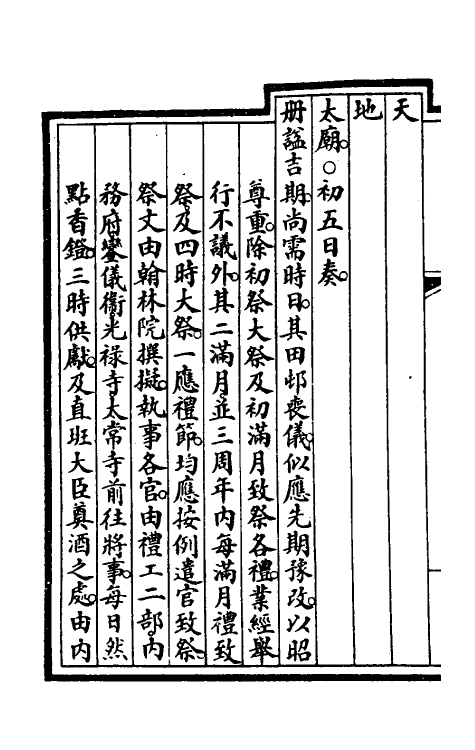 天
地
太廟。○初五日奏。
册諡吉期。尚需時日。其田邨喪儀。似應先期豫改。以昭
尊重。除初祭大祭及初滿月致祭各禮。業經舉
行不議外。其二滿月。並三周年內每滿月禮致
祭。及四時大祭。一應禮節。均應按例遣官致祭。
祭文由翰林院撰擬。執事各官。由禮工二部。內
務府。鑾儀衞。光祿寺。太常寺前往將事。每日然
點香鐙。三時供獻。及直班大臣奠酒之處。由內